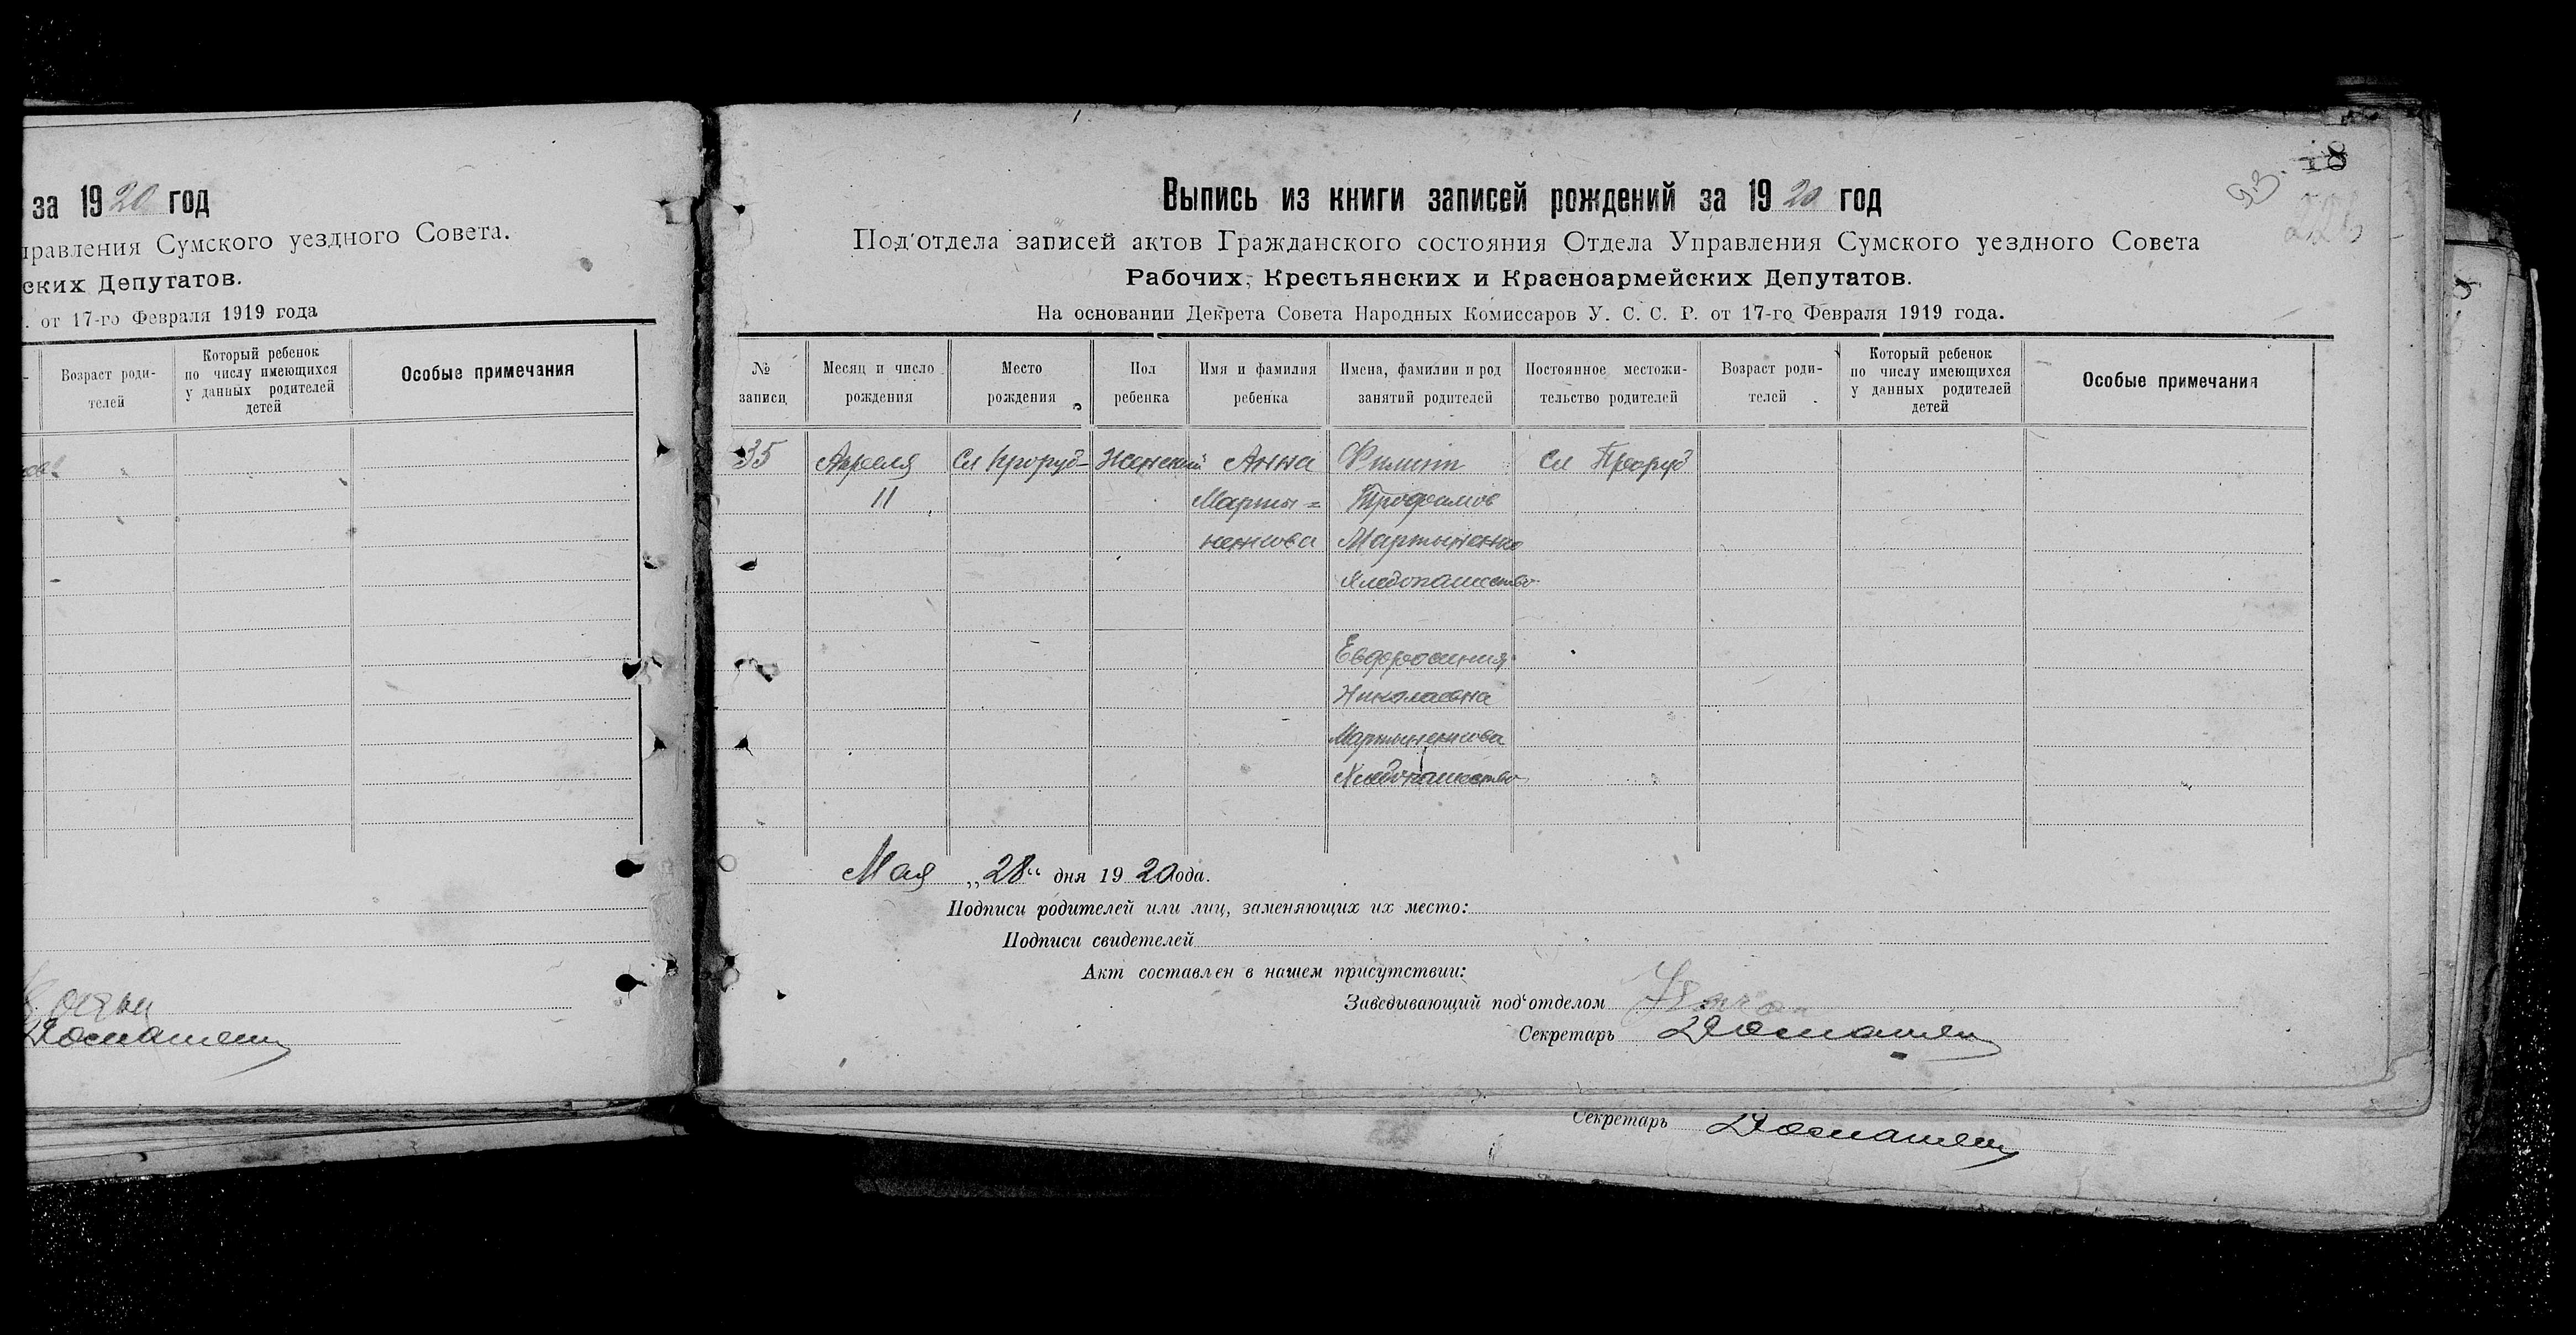 за 1920 год
правления Сумского уездного Совета.
ских Депутатов.
. от 17-го Февраля 1919 года
Возраст роди-
телей
Который ребенок
по числу имеющихся
у данных родителей
детей
Особые примечания
Выпись из книги записей рождений за 1920 год
Под'отдела записей актов Гражданского состояния Отдела Управления Сумского уездного Совета
Рабочих, Крестьянских и Красноармейских Депутатов.
На основании Декрета Совета Народных Комиссаров У. С. С. Р. от 17-го Февраля 1919 года.
№
записи
Месяц и число
рождения
Место
рождения
Пол
ребенка
Имя и фамилия
ребенка
Имена, фамилии и род
занятий родителей
Постоянное местожи-
тельство родителей
Возраст роди-
телей
Который ребенок
по числу имеющихся
у данных родителей
детей
Особые примечания
35 Апреля Сл Проруб- Женский Анна Филипп Сл Проруб
11 Марты= Трофимов
ненкова Мартыненко
Хлебопашество
Евфросиния
Николаевна
Мартыненкова
Хлебопашество
Мая „28“ дня 1920 ода.
Подписи родителей или лиц, заменяющих их место:
Подписи свидетелей
Акт составлен в нашем присутствии:
Заведывающий под'отделом
Секретарь
Секретарь